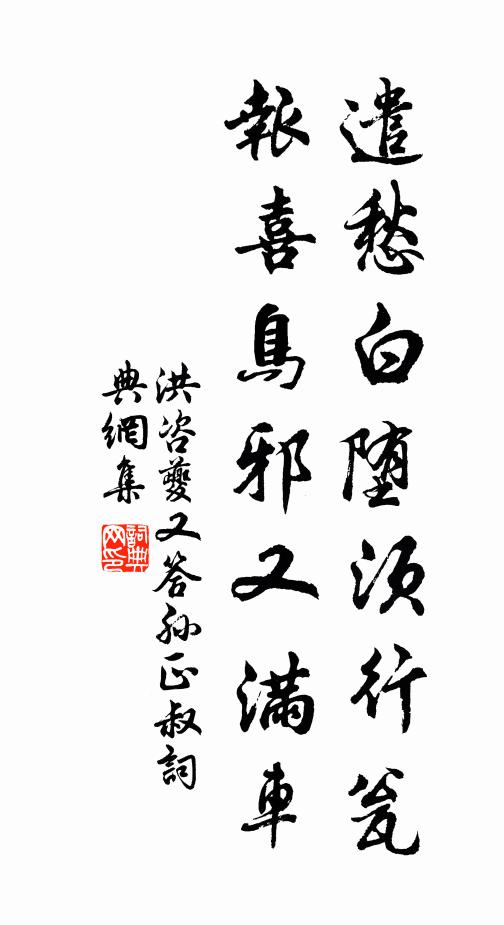 遣愁白堕須行瓮
報喜烏邪又滿車
洪咨夔又答孙正叔詞
典網集
詞典網印